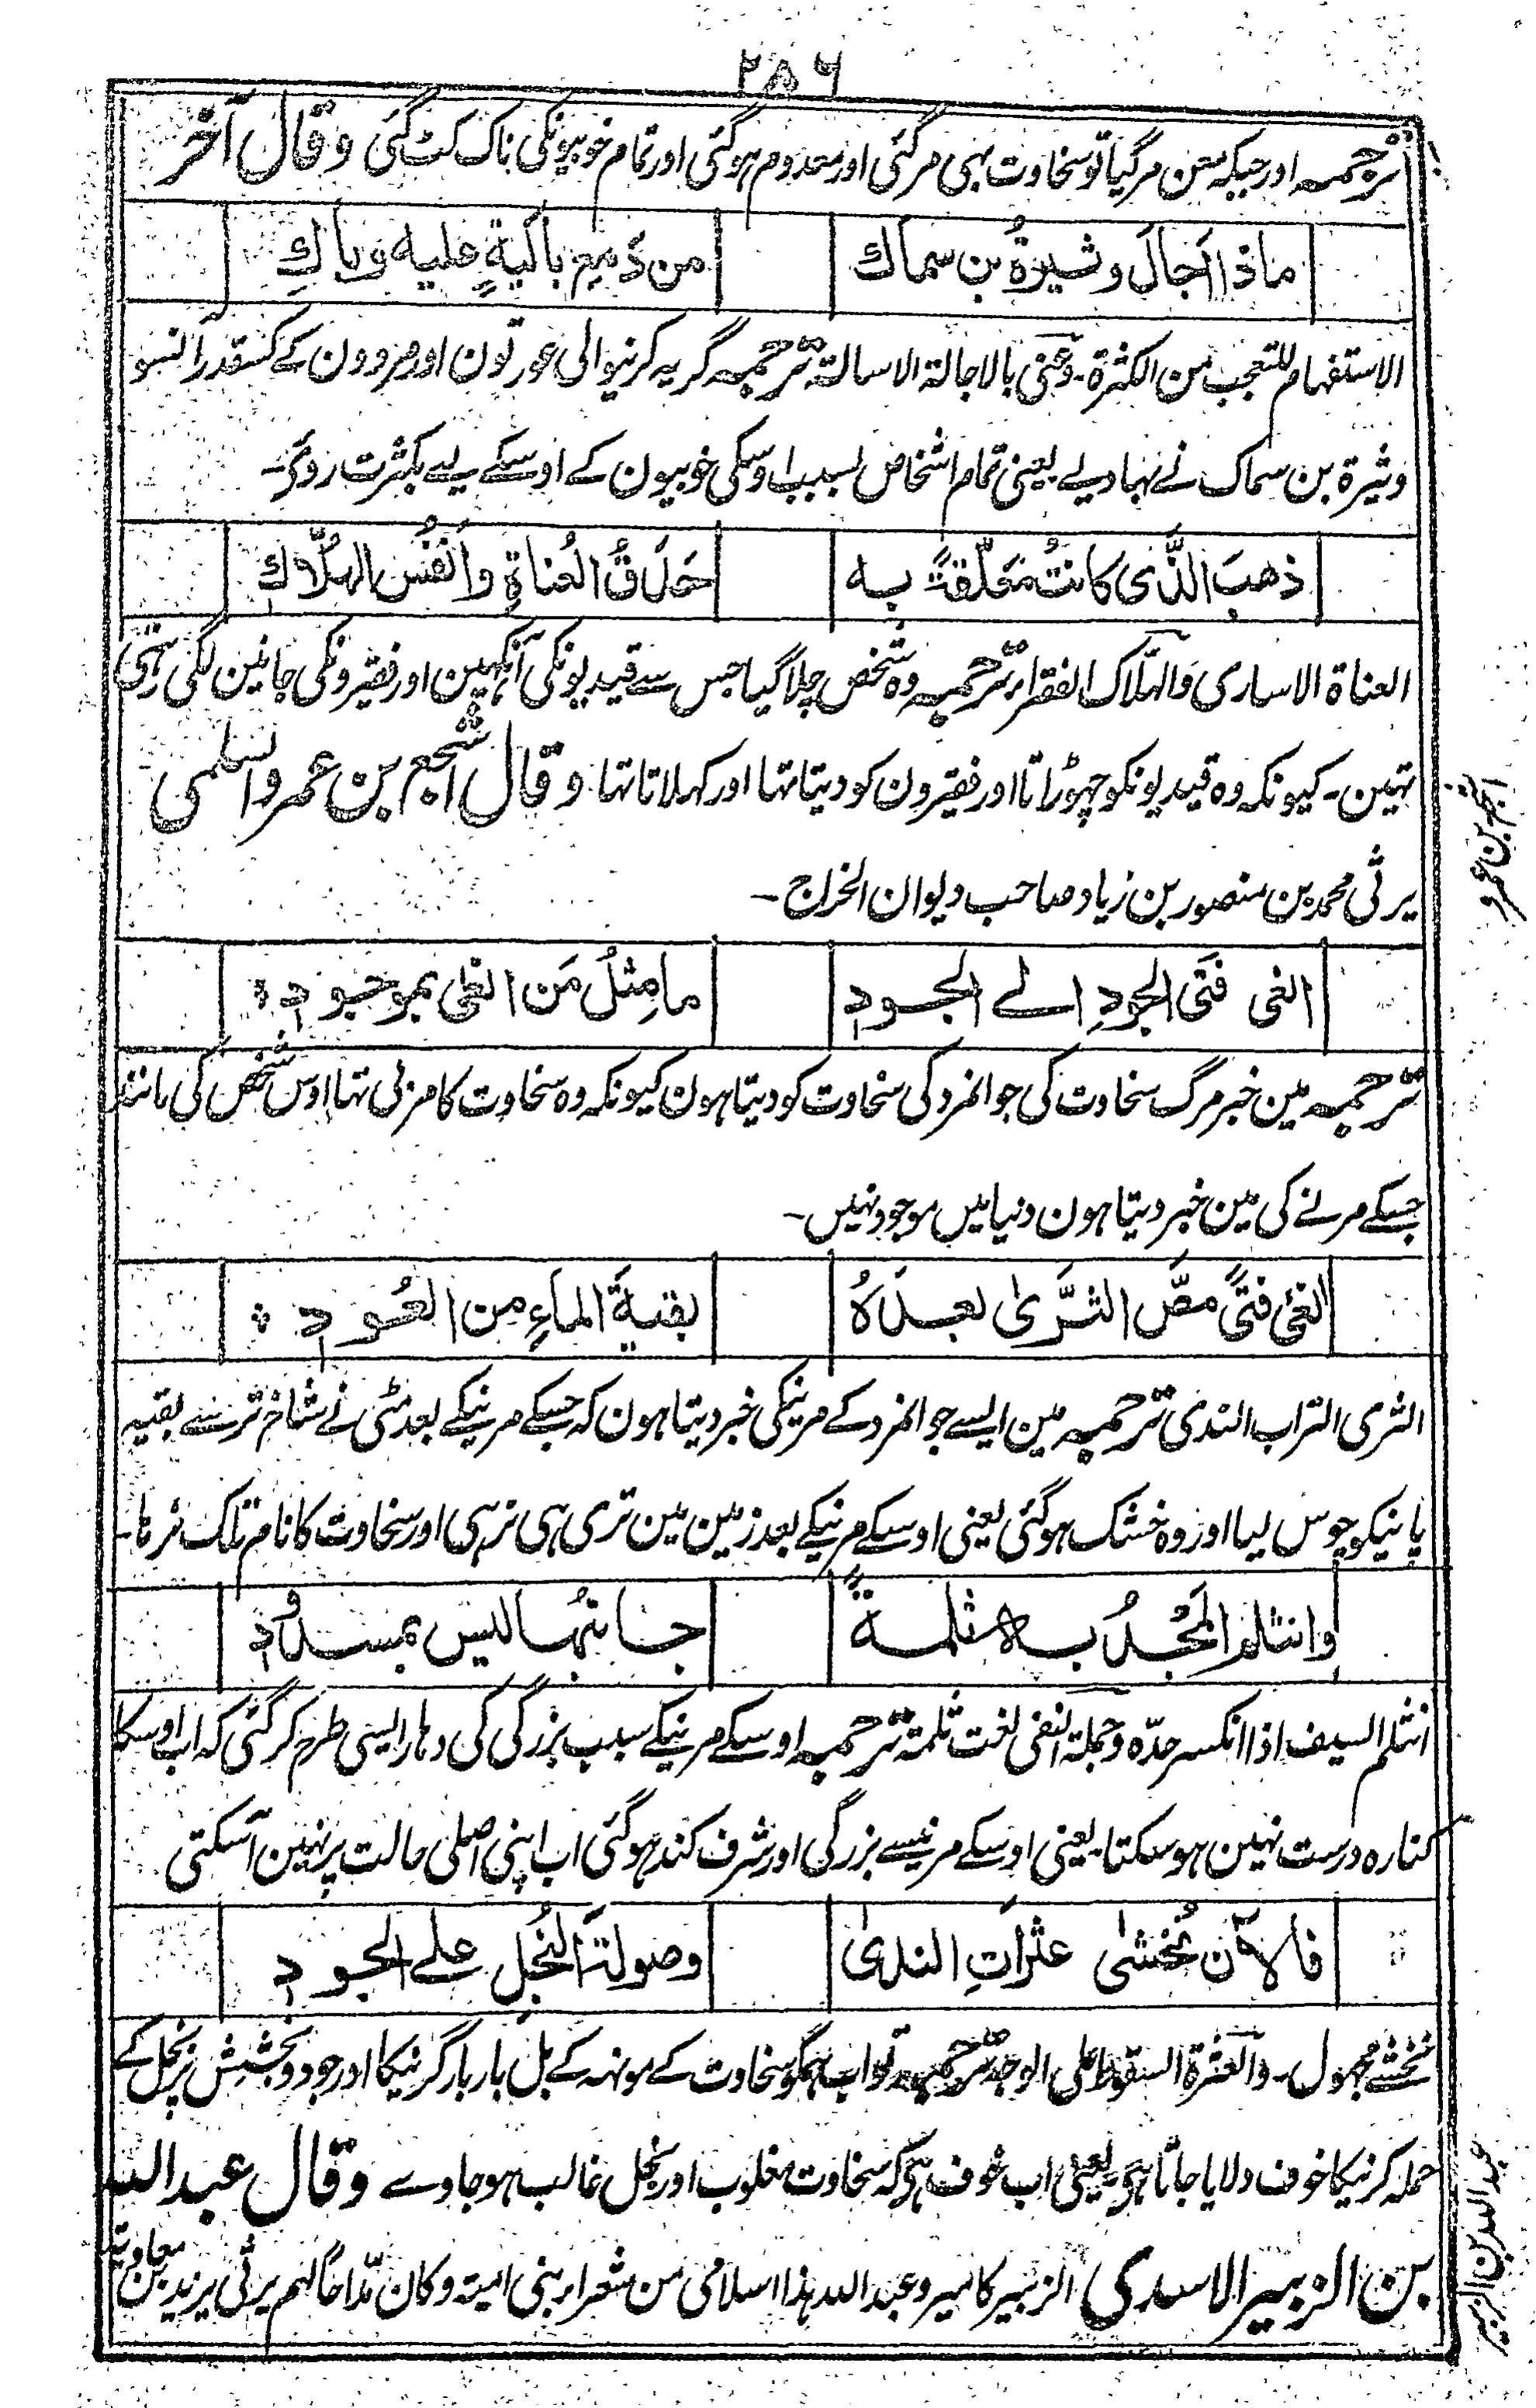 ۲۸۶
ترجمہ اور جبکہ معن مرگیا تو سخاوت بہی مرگئی اور معدوم ہوگئی اور تمام خوبیونکی ناک کٹ گئی وقال آخر
ماذا اَجَالَ وثیرةُ بن سماك من دَمعِ باکیةٍ علیه وباكِ
الاستفہام للتعجب من الکثرة۔ وعنی بالاجالة الاسالة ترجمہ گریہ کرنیوالی عورتون اور مردون کے کسقدر آنسو
وثیرة بن سماک نے بہا دیے یعنی تمام اشخاص بسبب اوسکی خوبیون کے اوسکے لیے بکثرت روئے۔
ذهبَ الَّذی کانتْ مُعَلَّقةً به حَدَقُ العُناةِ واَنفُس الهُلّاك
العناة الاساری والہلّاک الفقراء ترجمہ وہ شخص چلا گیا جس سے قیدیونکی آنکہین اور فقیرونکی جانین لگی رہتی
تہین۔ کیونکہ وہ قیدیونکو چہوڑاتا اور فقیرون کو دیتا تہا اور کہلاتا تہا۔ وقال اشجع بن عمرو السلمی
اشجع بن عمرو
یرثی محمد بن منصور بن زیاد صاحب دیوان الخراج۔
انعی فَتَی الجودِ الے الجودِ مامِثلُ مَن انعٰی بموجودِ
ترجمہ مین خبر مرگ سخاوت کی جوانمرد کی سخاوت کو دیتا ہون کیونکہ وہ سخاوت کا مربی تہا اوس شخص کی مانند
جسکے مرنے کی مین خبر دیتا ہون دنیا میں موجود نہیں۔
انعی فتًی مصَّ الثَّرٰی بعدَہُ بقیةَ الماءِ من العُودِ
الثری التراب الندی ترجمہ مین ایسے جوانمرد کے مرنیکی خبر دیتا ہون کہ جسکے مرنیکے بعد مٹی نے شاخ تر سے بقیہ
پانیکو چوس لیا اور وہ خشک ہوگئی یعنی اوسکے مرنیکے بعد زمین مین تری ہی نرہی اور سخاوت کا نام تلک نرہا۔
وانثلم المَجْدُ به ثلمةً جانبُها لیس بمسدُودِ
انثلم السیف اذا انکسر حدّہ وجملة النفی نعت ثلمة ترجمہ اوسکے مرنیکے سبب بزرگی کی دہار ایسی طرح گرگئی کہ اب اوسکا
کنارہ درست نہین ہو سکتا یعنی اوسکے مرنیسے بزرگی اور شرف کند ہوگئی اب اپنی اصلی حالت پر نہین آسکتی
فالآن تُخشٰی عثراتِ الندٰی وصولةُ البُخل علے الجودِ
تخشے مجہول۔ والعثرة السقوط علی الوجہ ترجمہ تو اب ہمکو سخاوت کے مونہہ کے بل بار بار گرنیکا اور جود و بخشش پر بخل کے
حملہ کرنیکا خوف دلایا جاتا ہے یعنی اب خوف ہے کہ سخاوت مغلوب اور بخل غالب ہو جاوے وقال عبد اللہ
بن الزبیر الاسدی الزبیر کامیر وعبد اللہ ہذا اسلامی من شعراء بنی امیة وکان مدّاحا لہم یرثی یزید بن معاویة
عبد اللہ بن الزبیر